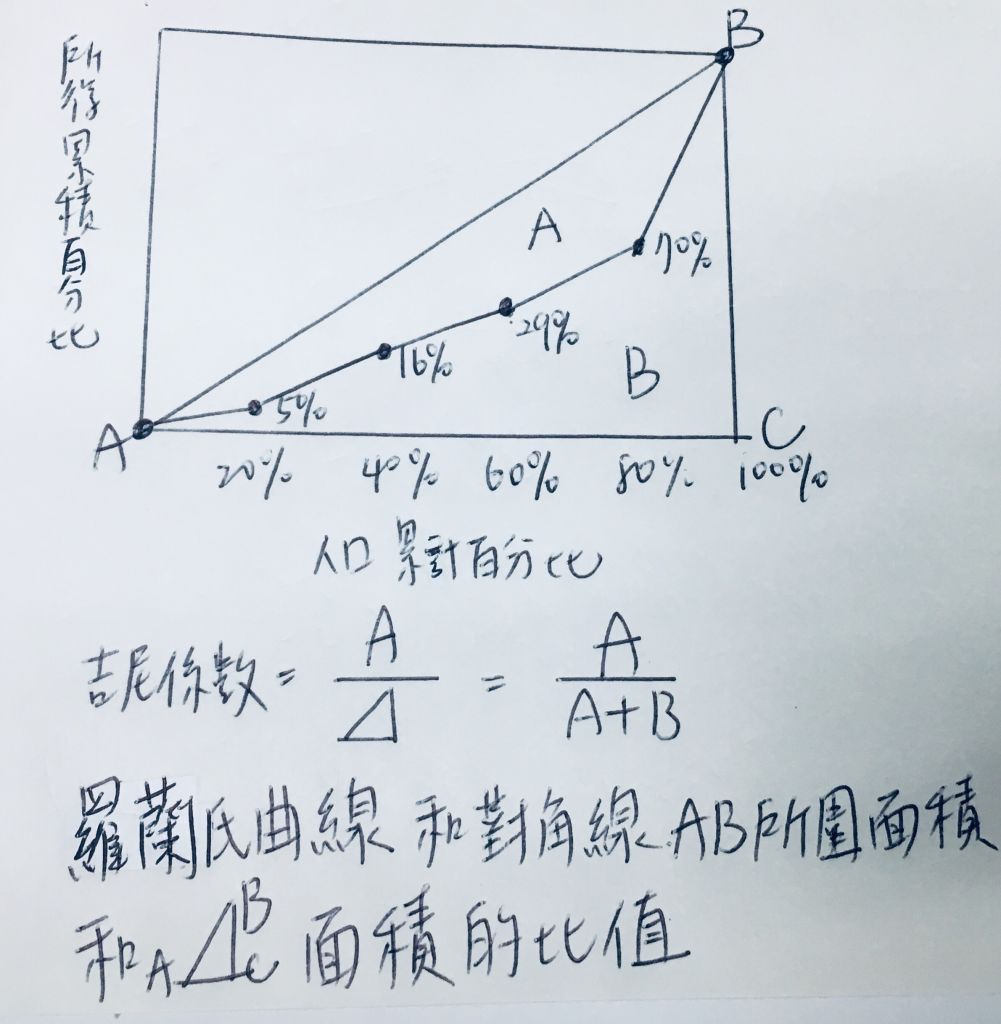 所得累積百分比
B
A
70%
29%
16%
B
5%
A
C
20% 40% 60% 80% 100%
人口累計百分比
吉尼係數 = A/⊿ = A/A+B
羅蘭氏曲線和對角線AB所圍面積
和A⊿BC面積的比值